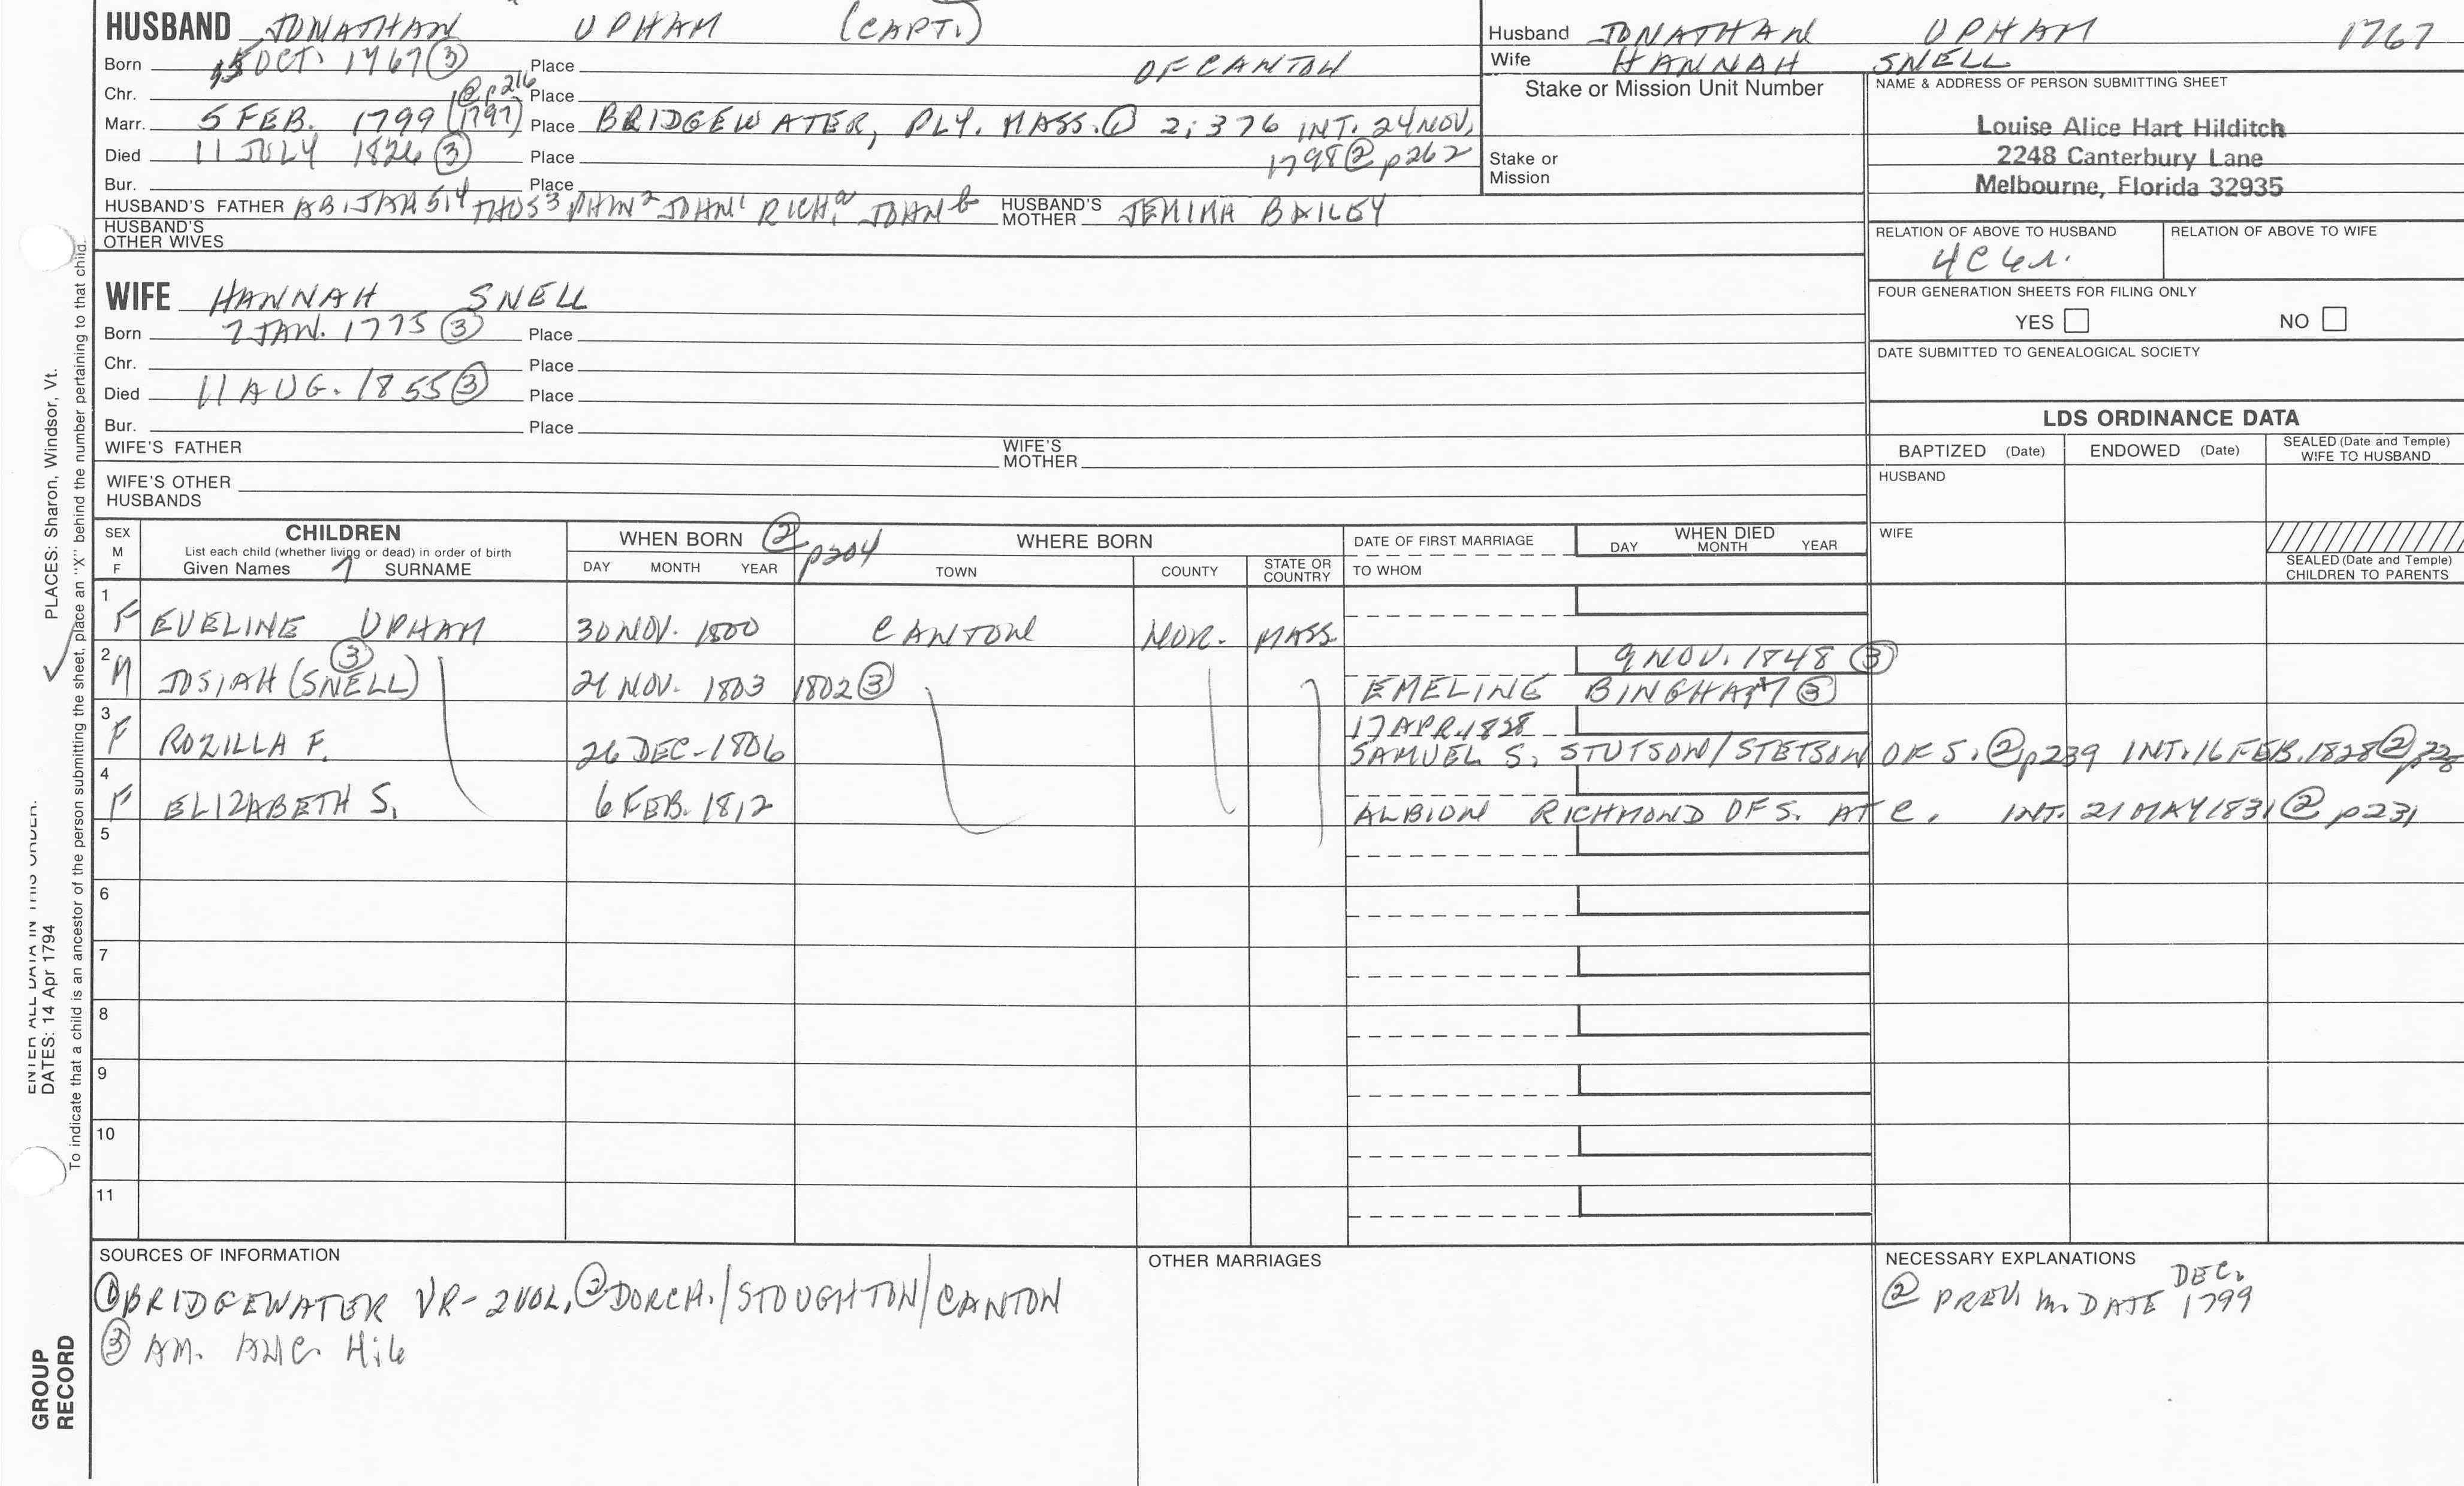 HUSBAND JONATHAN UPHAM (CAPT.)
Born 5 OCT. 1767 ③ Place OF CANTON
Chr. Place
Marr. 5 FEB. 1799 (1797) @ p216 Place BRIDGEWATER, PLY. MASS. ① 2:376 INT. 24 NOV.
Died 11 JULY 1826 ③ Place 1798 ② p262
Bur. Place
HUSBAND'S FATHER ABIJAH 5,4 THOS3 JOHN1 RICH.a JOHN b HUSBAND'S MOTHER JEMIMA BAILEY
HUSBAND'S OTHER WIVES
Husband JONATHAN UPHAM 1767
Wife HANNAH SNELL
Stake or Mission Unit Number
Stake or Mission
NAME & ADDRESS OF PERSON SUBMITTING SHEET
Louise Alice Hart Hilditch
2248 Canterbury Lane
Melbourne, Florida 32935
RELATION OF ABOVE TO HUSBAND RELATION OF ABOVE TO WIFE
4C 6r.
FOUR GENERATION SHEETS FOR FILING ONLY
YES NO
DATE SUBMITTED TO GENEALOGICAL SOCIETY
WIFE HANNAH SNELL
Born 7 JAN. 1775 ③ Place
Chr. Place
Died 11 AUG. 1855 ③ Place
Bur. Place
WIFE'S FATHER WIFE'S MOTHER
WIFE'S OTHER HUSBANDS
LDS ORDINANCE DATA
BAPTIZED (Date) ENDOWED (Date) SEALED (Date and Temple) WIFE TO HUSBAND
HUSBAND
WIFE
SEALED (Date and Temple) CHILDREN TO PARENTS
SEX M F
CHILDREN
List each child (whether living or dead) in order of birth
Given Names SURNAME
WHEN BORN ② p204
DAY MONTH YEAR
WHERE BORN
TOWN COUNTY STATE OR COUNTRY
DATE OF FIRST MARRIAGE
TO WHOM
WHEN DIED
DAY MONTH YEAR
1 F EVELINE UPHAM 30 NOV. 1800 CANTON NOR. MASS.
9 NOV. 1848 ③
2 M JOSIAH (SNELL) ③ 21 NOV. 1803 1802 ③ EMELINE BINGHAM ③
17 APR. 1828
3 F ROZILLA F. 26 DEC. 1806 SAMUEL S. STUTSON/STETSON OF S. ② p239 INT. 16 FEB. 1828 ②
4 F ELIZABETH S. 6 FEB. 1812 ALBION RICHMOND OF S. AT C. INT. 21 MAY 1831 ② p231
5
6
7
8
9
10
11
SOURCES OF INFORMATION
① BRIDGEWATER VR-2VOL. ② DORCH./STOUGHTON/CANTON
③ AM. ANC.
OTHER MARRIAGES
NECESSARY EXPLANATIONS
② PREV. m. DATE DEC. 1799
PLACES: Sharon, Windsor, Vt.
DATES: 14 Apr 1794
To indicate that a child is an ancestor of the person submitting the sheet, place an "X" behind the number pertaining to that child.
GROUP
RECORD